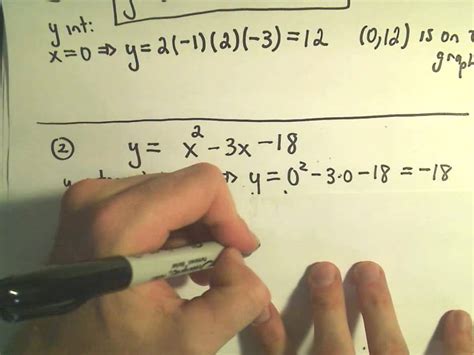 y int:
x=0 ⇒ y = 2(-1)(2)(-3) = 12 (0,12) is on
② y = x² - 3x - 18
⇒ y = 0² - 3·0 - 18 = -18